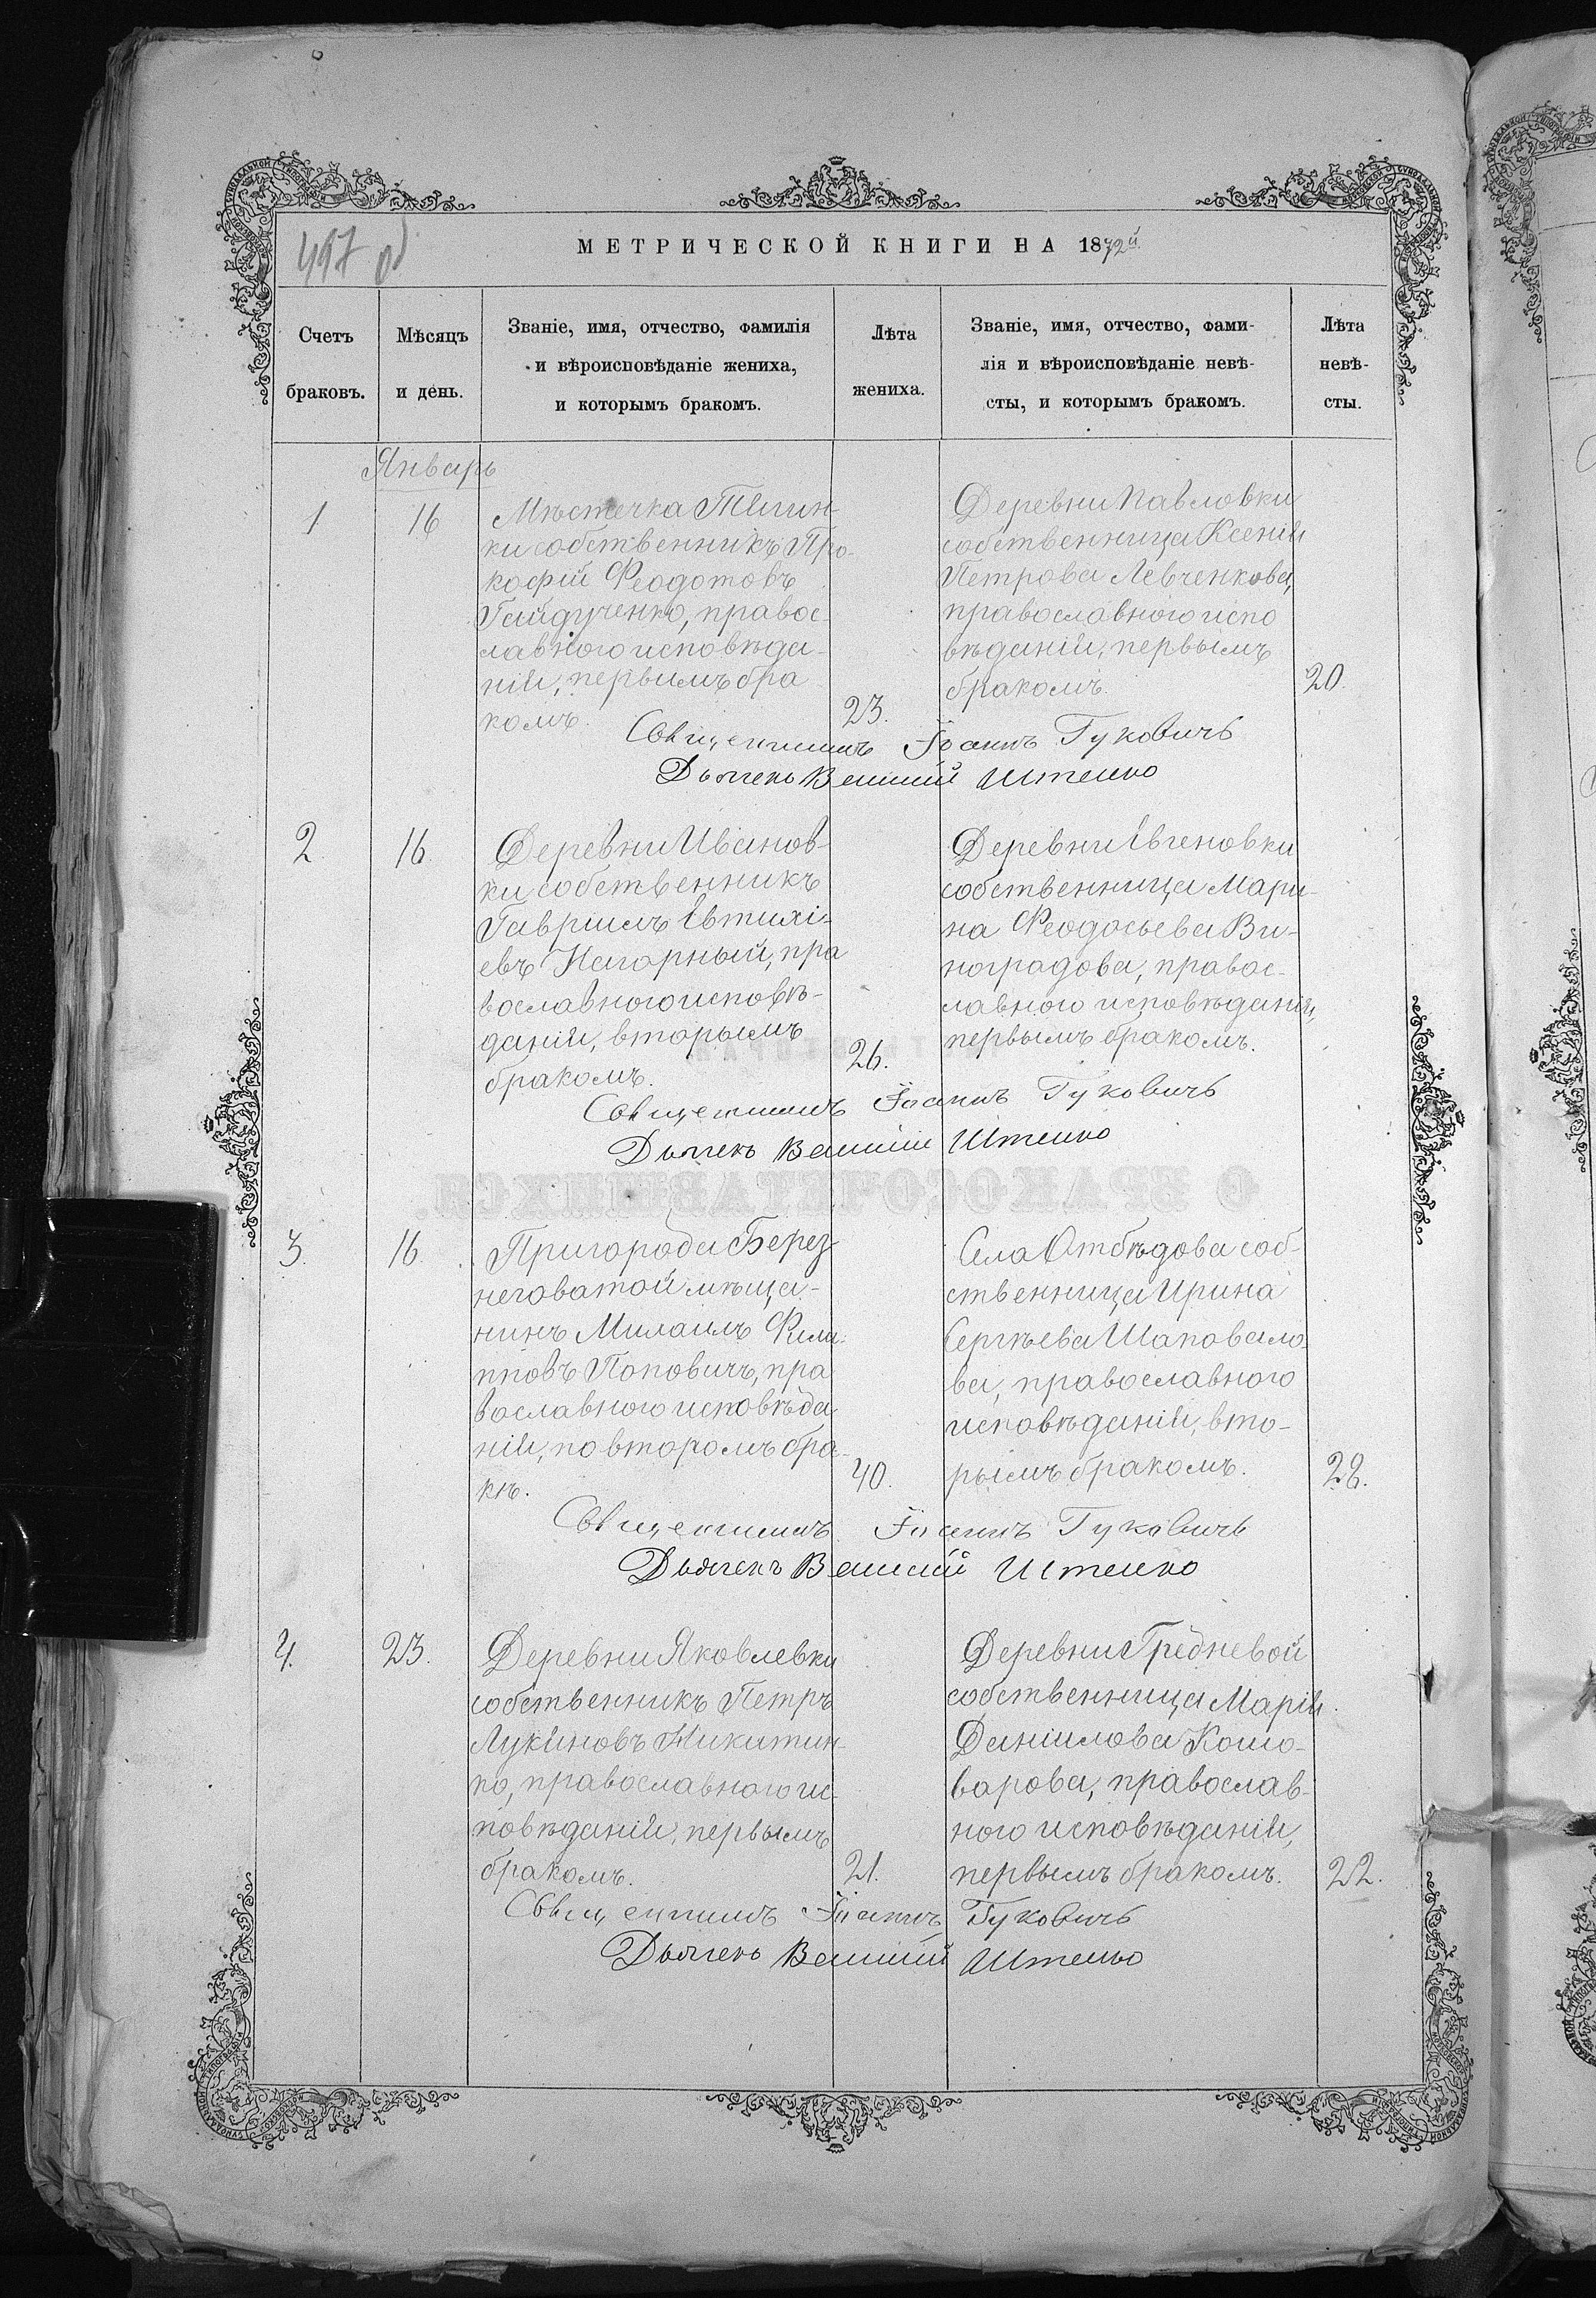 497 об
МЕТРИЧЕСКОЙ КНИГИ НА 1872й.
Счетъ
браковъ.
Мѣсяцъ
и день.
Званіе, имя, отчество, фамилія
и вѣроисповѣданіе жениха,
и которымъ бракомъ.
Лѣта
жениха.
Званіе, имя, отчество, фами-
лія и вѣроисповѣданіе невѣ-
сты, и которымъ бракомъ.
Лѣта
невѣ-
сты.
Январь
1
16
Мѣстечка
ки собственникъ Про-
кофій Феодотовъ
Гайдученко, правос-
лавного исповѣда-
нія, первымъ бра
комъ.
23.
Деревни Павловки
собственница Ксенія
Петрова Левченкова,
православного испо
вѣданія, первымъ
бракомъ.
20.
Священникъ Іоаннъ Гуковичъ
Дьячекъ Василій
2
16.
Деревни Иванов-
ки собственникъ
Гавриилъ Евтихі-
евъ Нагорный, пра
вославного исповѣ-
данія, вторымъ
бракомъ.
26.
Деревни Евгеновки
собственница Мари-
на Феодосьева Ви-
ноградова, правос-
лавного исповѣданія,
первымъ бракомъ.
Священникъ Іоаннъ Гуковичъ
Дьячекъ Василій
3.
16.
Пригорода Берез
неговатой мѣща-
нинъ Михаилъ Фили-
пповъ Поповичъ, пра
вославного исповѣда
нія, по второмъ бра-
кѣ.
40.
Села Отбѣдова соб-
ственница Ирина
Сергѣева Шаповало-
ва, православного
исповѣданія, вто-
рымъ бракомъ.
28.
Священникъ Іоаннъ Гуковичъ
Дьячекъ Василій
4.
23.
Деревни Яковлевки
собственникъ Петръ
Лукиновъ Никитин-
ко, православного ис-
повѣданія, первымъ
бракомъ.
21.
Деревни Гредневой
собственница Марія
Даніилова Кошо-
варова, православ-
ного исповѣданія,
первымъ бракомъ.
22.
Священникъ Іоаннъ Гуковичъ
Дьячекъ Василій